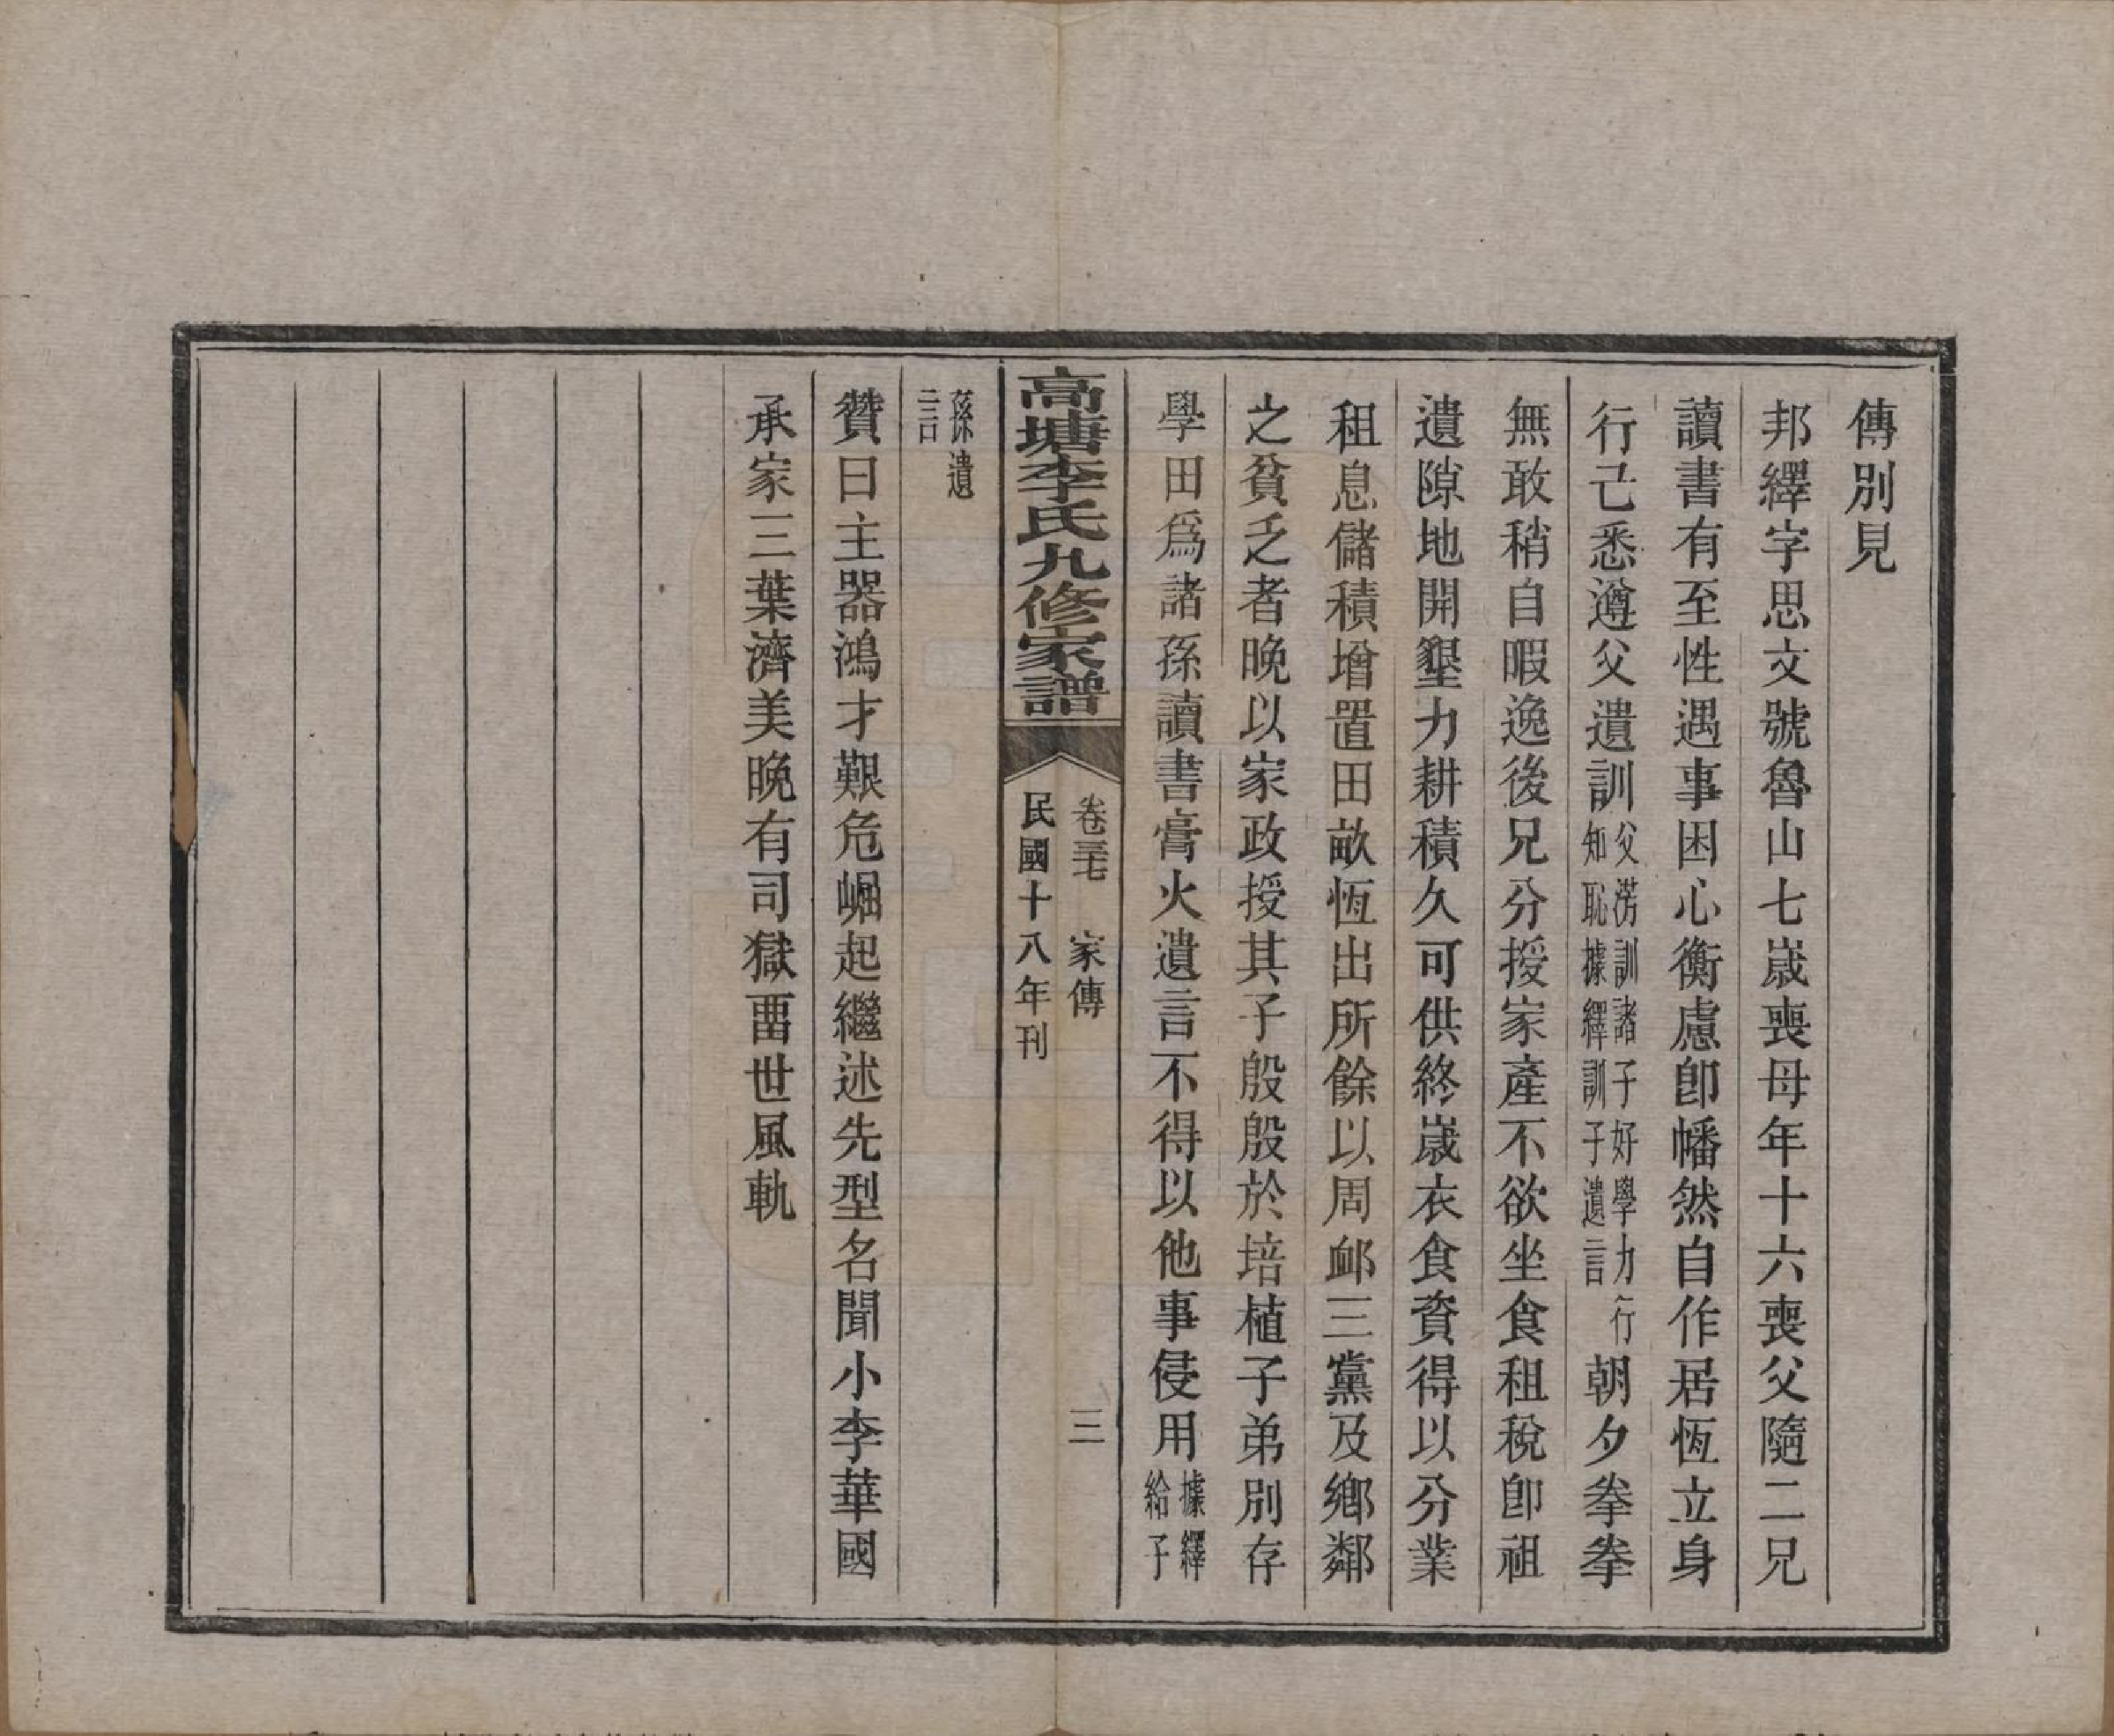 傳別見
邦繹字思文號魯山七歲喪母年十六喪父隨二兄
讀書有至性遇事困心衡慮卽幡然自作居恆立身
行己悉遵父遺訓父澇訓諸子好學力行知恥據繹訓子遺言朝夕拳拳
無敢稍自暇逸後兄分授家產不欲坐食租稅卽祖
遺隙地開墾力耕積久可供終歲衣食資得以分業
租息儲積增置田畝恆出所餘以周邮三黨及鄉鄰
之貧乏者晚以家政授其子殷殷於培植子弟別存
學田爲諸孫讀書膏火遺言不得以他事侵用據繹給子
高塘李氏九修家譜
卷三十七 家傳 三
民國十八年刊
孫遺言
贊曰主器鴻才艱危崛起繼述先型名聞小李華國
承家三葉濟美晚有司獄畱世風軌